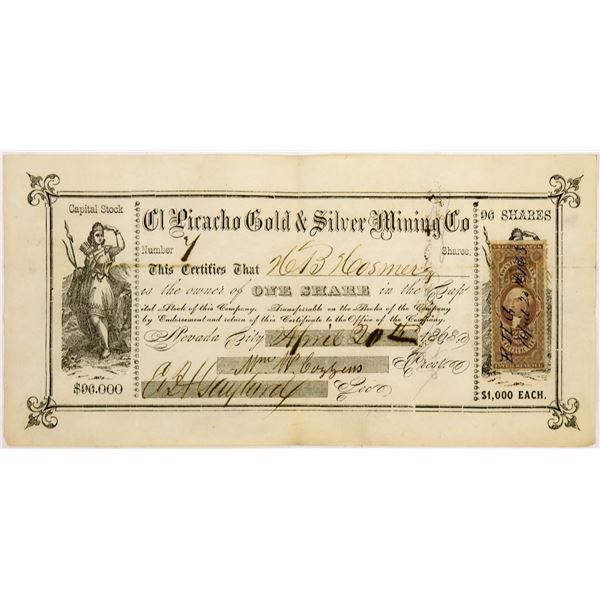 Capital Stock
El Picacho Gold & Silver Mining Co
96 SHARES
Number 7 Shares
This Certifies That H B Hosmer
is the owner of ONE SHARE in the Cap
ital Stock of this Company. Transferrable on the Books of the Company
by Endorsement and return of this Certificate to the Office of the Company.
Nevada City April 20th 1863
Wm W Cozzens Prest
Secy
$96.000
$1,000 EACH.